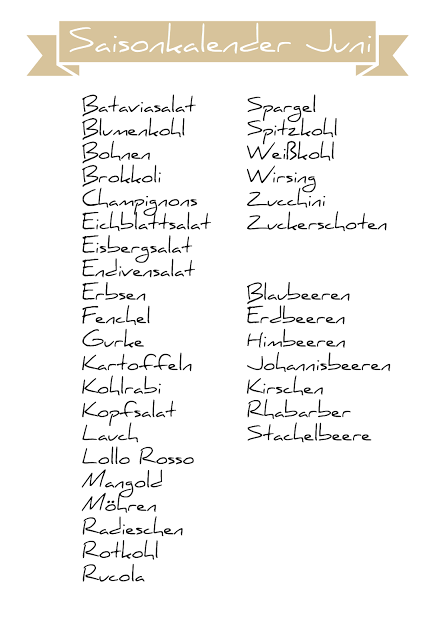 Saisonkalender Juni
Bataviasalat
Blumenkohl
Bohnen
Brokkoli
Champignons
Eichblattsalat
Eisbergsalat
Endivensalat
Erbsen
Fenchel
Gurke
Kartoffeln
Kohlrabi
Kopfsalat
Lauch
Lollo Rosso
Mangold
Möhren
Radieschen
Rotkohl
Rucola
Spargel
Spitzkohl
Weißkohl
Wirsing
Zucchini
Zuckerschoten
Blaubeeren
Erdbeeren
Himbeeren
Johannisbeeren
Kirschen
Rhabarber
Stachelbeere